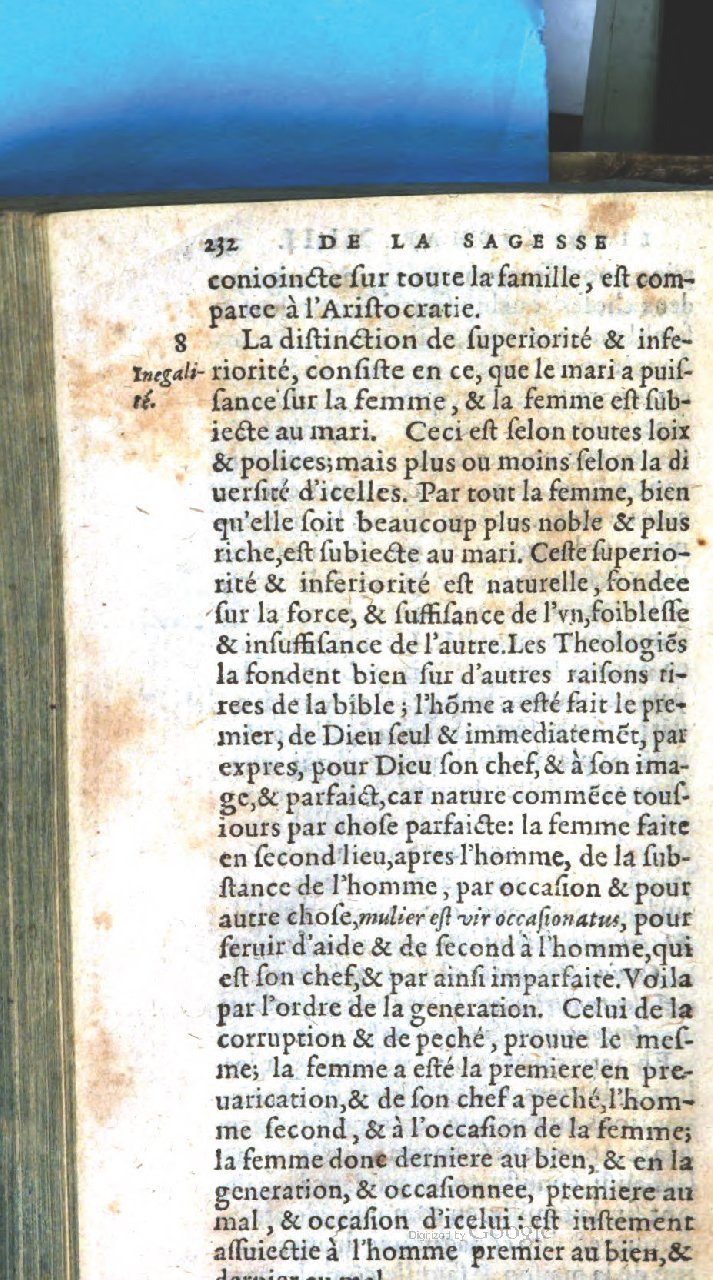 232 DE LA SAGESSE
conioincte ſur toute la famille, eſt com-
paree à l'Ariſtocratie.
8 La diſtinction de ſuperiorité & infe-
Inegali- riorité, conſiſte en ce, que le mari a puiſ-
té. ſance ſur la femme, & la femme eſt ſub-
iecte au mari. Ceci eſt ſelon toutes loix
& polices; mais plus ou moins ſelon la di
uerſité d'icelles. Par tout la femme, bien
qu'elle ſoit beaucoup plus noble & plus
riche, eſt ſubiecte au mari. Ceſte ſuperio-
rité & inferiorité eſt naturelle, fondee
ſur la force, & ſuffiſance de l'vn, foibleſſe
& inſuffiſance de l'autre. Les Theologiẽs
la fondent bien ſur d'autres raiſons ti-
rees de la bible; l'hõme a eſté fait le pre-
mier, de Dieu ſeul & immediatemẽt, par
expres, pour Dieu ſon chef, & à ſon ima-
ge, & parfaict, car nature commẽce touſ-
iours par choſe parfaicte: la femme faite
en ſecond lieu, apres l'homme, de la ſub-
ſtance de l'homme, par occaſion & pour
autre choſe, mulier eſt vir occaſionatus, pour
ſeruir d'aide & de ſecond à l'homme, qui
eſt ſon chef, & par ainſi imparfaite. Voila
par l'ordre de la generation. Celui de la
corruption & de peché, prouue le meſ-
me; la femme a eſté la premiere en pre-
uarication, & de ſon chef a peché, l'hom-
me ſecond, & à l'occaſion de la femme;
la femme donc derniere au bien, & en la
generation, & occaſionnee, premiere au
mal, & occaſion d'icelui: eſt iuſtement
aſſuiectie à l'homme premier au bien, &
dernier au mal.
Digitized by Google